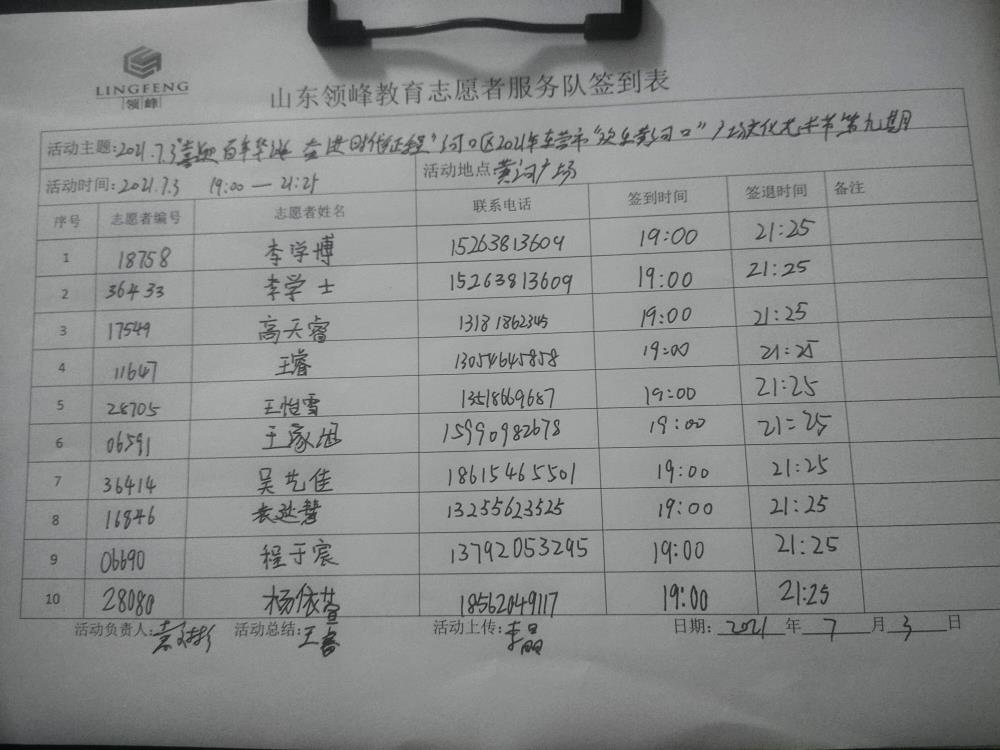 LINGFENG
领峰
山东领峰教育志愿者服务队签到表
活动主题:2021.7.3"喜迎百年华诞 奋进时代征程"河口区2021年东营市"欢乐黄河口"广场文化艺术节第九期
活动时间:2021.7.3 19:00—21:25 活动地点 黄河广场
序号 志愿者编号 志愿者姓名 联系电话 签到时间 签退时间 备注
1 18758 李学博 15263813609 19:00 21:25
2 36433 李学士 15263813609 19:00 21:25
3 17549 高天睿 13181862345 19:00 21:25
4 11647 王睿 13054645858 19:00 21:25
5 28705 王怡雪 13518669687 19:00 21:25
6 06591 王家 15990982678 19:00 21:25
7 36414 吴艺佳 18615465501 19:00 21:25
8 16846 13255623525 19:00 21:25
9 06690 程于宸 13792053295 19:00 21:25
10 28080 杨依萱 18562049117 19:00 21:25
活动负责人: 活动总结:王睿 活动上传:李晶 日期:2021年7月3日